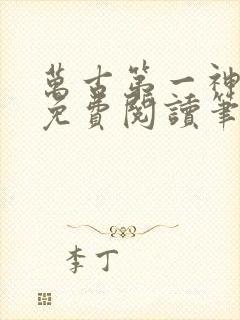 萬古第一神
免費閱讀筆
李丁